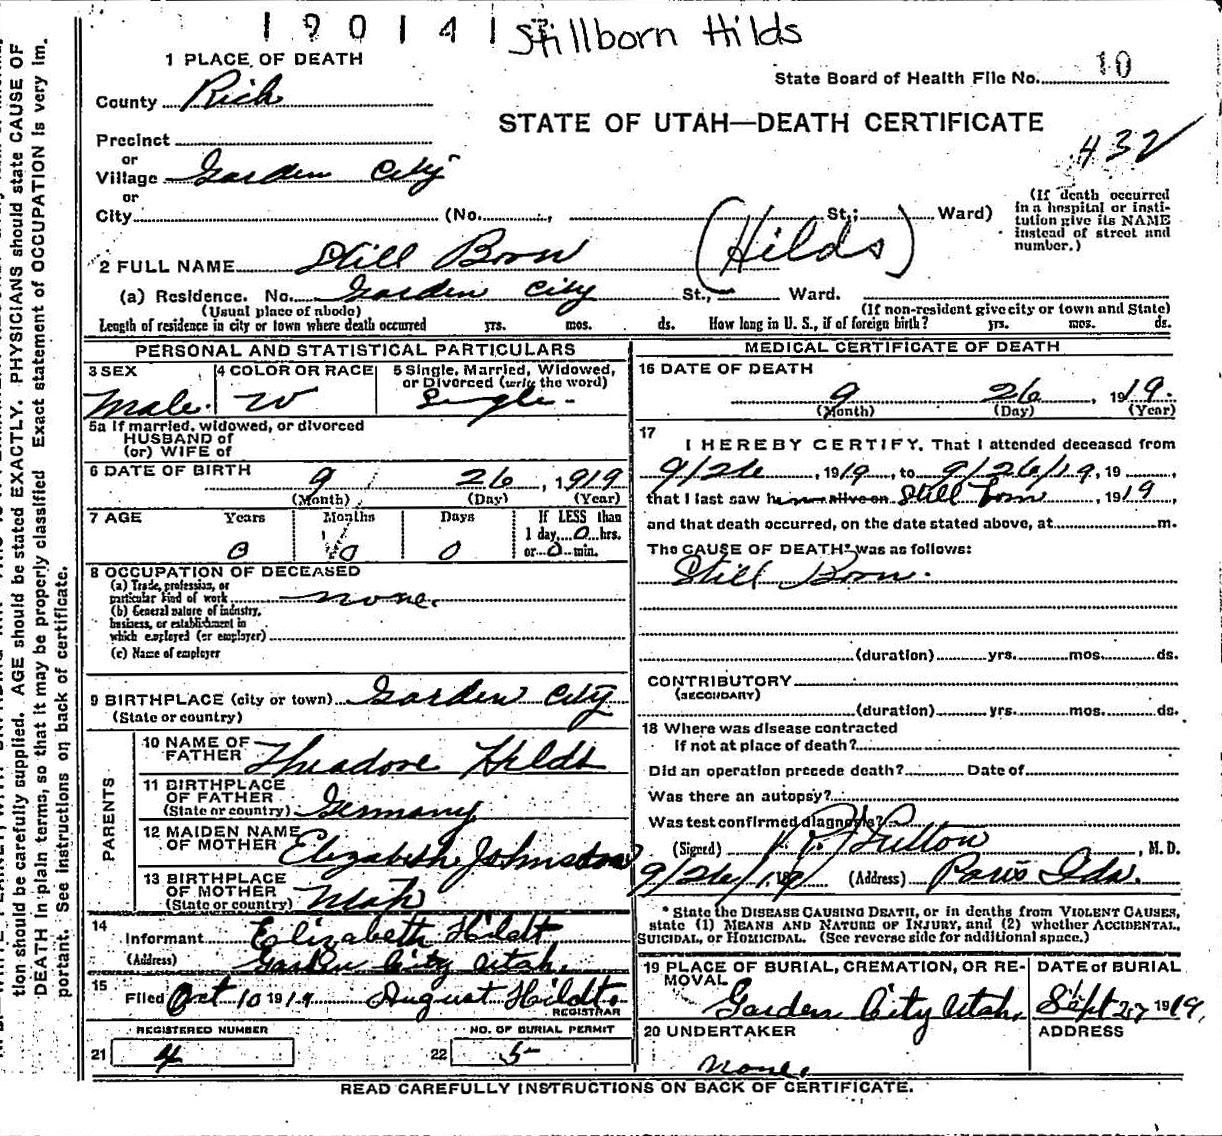 190141 Stillborn Hilds
1 PLACE OF DEATH
State Board of Health File No. 10
County Rich
STATE OF UTAH—DEATH CERTIFICATE
432
Precinct
or
Village Garden City
or
City (No. , St.; Ward)
(If death occurred in a hospital or insti-
tution give its NAME
instead of street and
number.)
2 FULL NAME Still Born (Hilds)
(a) Residence. No. Garden City St., Ward.
(Usual place of abode) (If non-resident give city or town and State)
Length of residence in city or town where death occurred yrs. mos. ds. How long in U. S., if of foreign birth? yrs. mos. ds.
PERSONAL AND STATISTICAL PARTICULARS
3 SEX Male.
4 COLOR OR RACE W
5 Single, Married, Widowed,
or Divorced (write the word)
Single.
5a If married, widowed, or divorced
HUSBAND of
(or) WIFE of
6 DATE OF BIRTH 9 26, 1919
(Month) (Day) (Year)
7 AGE Years Months Days If LESS than
1 day, 0 hrs.
0 0 0 or 0 min.
8 OCCUPATION OF DECEASED
(a) Trade, profession, or
particular kind of work none.
(b) General nature of industry,
business, or establishment in
which employed (or employer)
(c) Name of employer
9 BIRTHPLACE (city or town) Garden City
(State or country)
PARENTS
10 NAME OF
FATHER Theadore Hildt
11 BIRTHPLACE
OF FATHER
(State or country) Germany
12 MAIDEN NAME
OF MOTHER Elizabeth Johnson
13 BIRTHPLACE
OF MOTHER
(State or country) Utah
14
Informant Elizabeth Hildt
(Address) Garden City Utah.
15
Filed Oct 10 1919 August Hildt
REGISTRAR
REGISTERED NUMBER NO. OF BURIAL PERMIT
21 4 22 5
MEDICAL CERTIFICATE OF DEATH
16 DATE OF DEATH
9 26, 1919.
(Month) (Day) (Year)
17
I HEREBY CERTIFY, That I attended deceased from
9/26, 1919, to 9/26/19, 19
that I last saw him alive on Still born, 1919,
and that death occurred, on the date stated above, at m.
The CAUSE OF DEATH* was as follows:
Still Born.
(duration) yrs. mos. ds.
CONTRIBUTORY
(SECONDARY)
(duration) yrs. mos. ds.
18 Where was disease contracted
If not at place of death?
Did an operation precede death? Date of
Was there an autopsy?
Was test confirmed diagnosis?
(Signed) Sutton, M. D.
9/26/19 (Address) Paris Ida.
* State the DISEASE CAUSING DEATH, or in deaths from VIOLENT CAUSES,
state (1) MEANS AND NATURE OF INJURY, and (2) whether ACCIDENTAL,
SUICIDAL, or HOMICIDAL. (See reverse side for additional space.)
19 PLACE OF BURIAL, CREMATION, OR RE-
MOVAL
Garden City Utah.
DATE of BURIAL
Sept 27 1919,
20 UNDERTAKER
none.
ADDRESS
READ CAREFULLY INSTRUCTIONS ON BACK OF CERTIFICATE.
tion should be carefully supplied. AGE should be stated EXACTLY. PHYSICIANS should state CAUSE OF
DEATH in plain terms, so that it may be properly classified Exact statement of OCCUPATION is very im.
portant. See instructions on back of certificate.